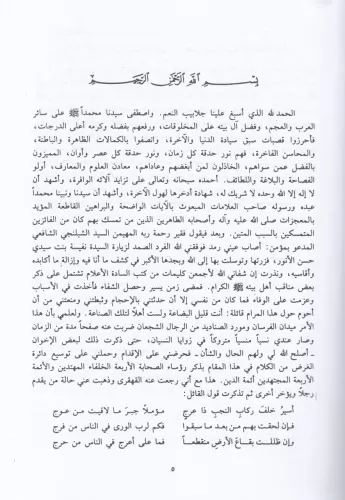 بسم الله الرحمن الرحيم
الحمد لله الذي أسبغ علينا جلابيب النعم. واصطفى سيدنا محمداً ﷺ على سائر
العرب والعجم، وفضل آل بيته على المخلوقات، ورفعهم بفضله وكرمه أعلى الدرجات،
فأحرزوا قصبات سبق سيادة الدنيا والآخرة، واتصفوا بالكمالات الظاهرة والباطنة،
والمحاسن الفاخرة، فهم نور حدقة كل زمان، ونور حدقة كل عصر وأوان، المميزون
بالفضل عمن سواهم، الخاذلون لمن أبغضهم وعاداهم، معادن العلوم والمعارف، أولو
الفصاحة والبلاغة واللطائف. أحمده سبحانه وتعالى على تزايد آلائه الوافرة، وأشهد أن
لا إله إلا الله وحده لا شريك له، شهادة أدخرها لهول الآخرة، وأشهد أن سيدنا ونبينا محمداً
عبده ورسوله صاحب العلامات المبعوث بالآيات الواضحة والبراهين القاطعة المؤيد
بالمعجزات صلى الله عليه وآله وأصحابه الطاهرين الذين من تمسك بهم كان من الفائزين
المتمسكين بالسبب المتين. وبعد فيقول فقير رحمة ربه المهيمن السيد الشبلنجي الشافعي
المدعو بمؤمن: أصاب عيني رمد فوفقني الله الفرد الصمد لزيارة السيدة نفيسة بنت سيدي
حسن الأنور، فزرتها وتوسلت بها إلى الله وبجدها الأكبر في كشف ما أنا فيه وإزالة ما أكابده
وأقاسيه، ونذرت إن شفاني الله لأجمعن كليمات من كتب السادة الأعلام تشتمل على ذكر
بعض مناقب أهل بيته ﷺ الكرام. فمضى زمن يسير وحصل الشفاء فأخذت في الأسباب
وعزمت على الوفاء فما كان من نفسي إلا أن حدثتني بالإحجام وثبطتني ومنعتني من أن
أحوم حول هذا المرام قائلة: أنت قليل البضاعة ولست أهلاً لتلك الصناعة. ولعلمي بأن هذا
الأمر ميدان الفرسان ومورد الصناديد من الرجال الشجعان ضربت عنه صفحاً مدة من الزمان
وصار عندي نسياً منسياً متروكاً في زوايا النسيان، حتى ذكرت ذلك لبعض الإخوان
ـ أصلح الله لي ولهم الحال والشأن ـ فحرضني على الإقدام وحملني على توسيع دائرة
الغرض من الكلام في هذا المقام بذكر رؤساء الصحابة الأربعة الخلفاء المهتدين والأئمة
الأربعة المجتهدين أئمة الدين. هذا مع أني رجعت عنه القهقرى وذهبت عني حالة من يقدم
رجلاً ويؤخر أخرى ثم تذكرت قول القائل:
أسير خلف ركاب النجب ذا عرج مؤملاً جبر ما لاقيت من عوج
فإن لحقت بهم من بعد ما سبقوا فكم لرب الورى في الناس من فرج
وإن ظللت بقاع الأرض منقطعاً فما على أعرج في الناس من حرج
٥